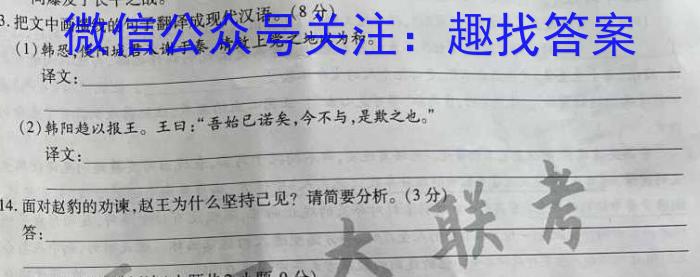 3. 把文中画横线的句子翻译成现代汉语。(8分)
微信公众号关注：趣找答案
(1)韩恐,使阳城君入谢于秦,请效上党之地以为和。
译文：
(2)韩阳趋以报王。王曰：“吾始已诺矣,今不与,是欺之也。”
译文：
14. 面对赵豹的劝谏,赵王为什么坚持己见？请简要分析。(3分)
答：
大联考